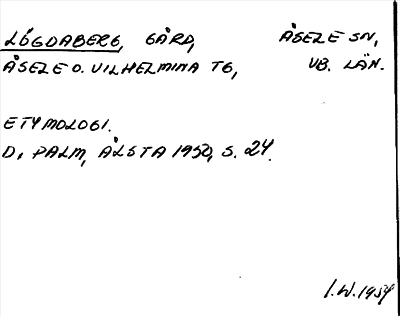 LÖGDABERG, GÅRD, ÅSELE SN,
ÅSELE O. VILHELMINA TG, VB. LÄN.
ETYMOLOGI.
D. PALM, ÅLSTA 1950, S. 24.
I.W. 1954